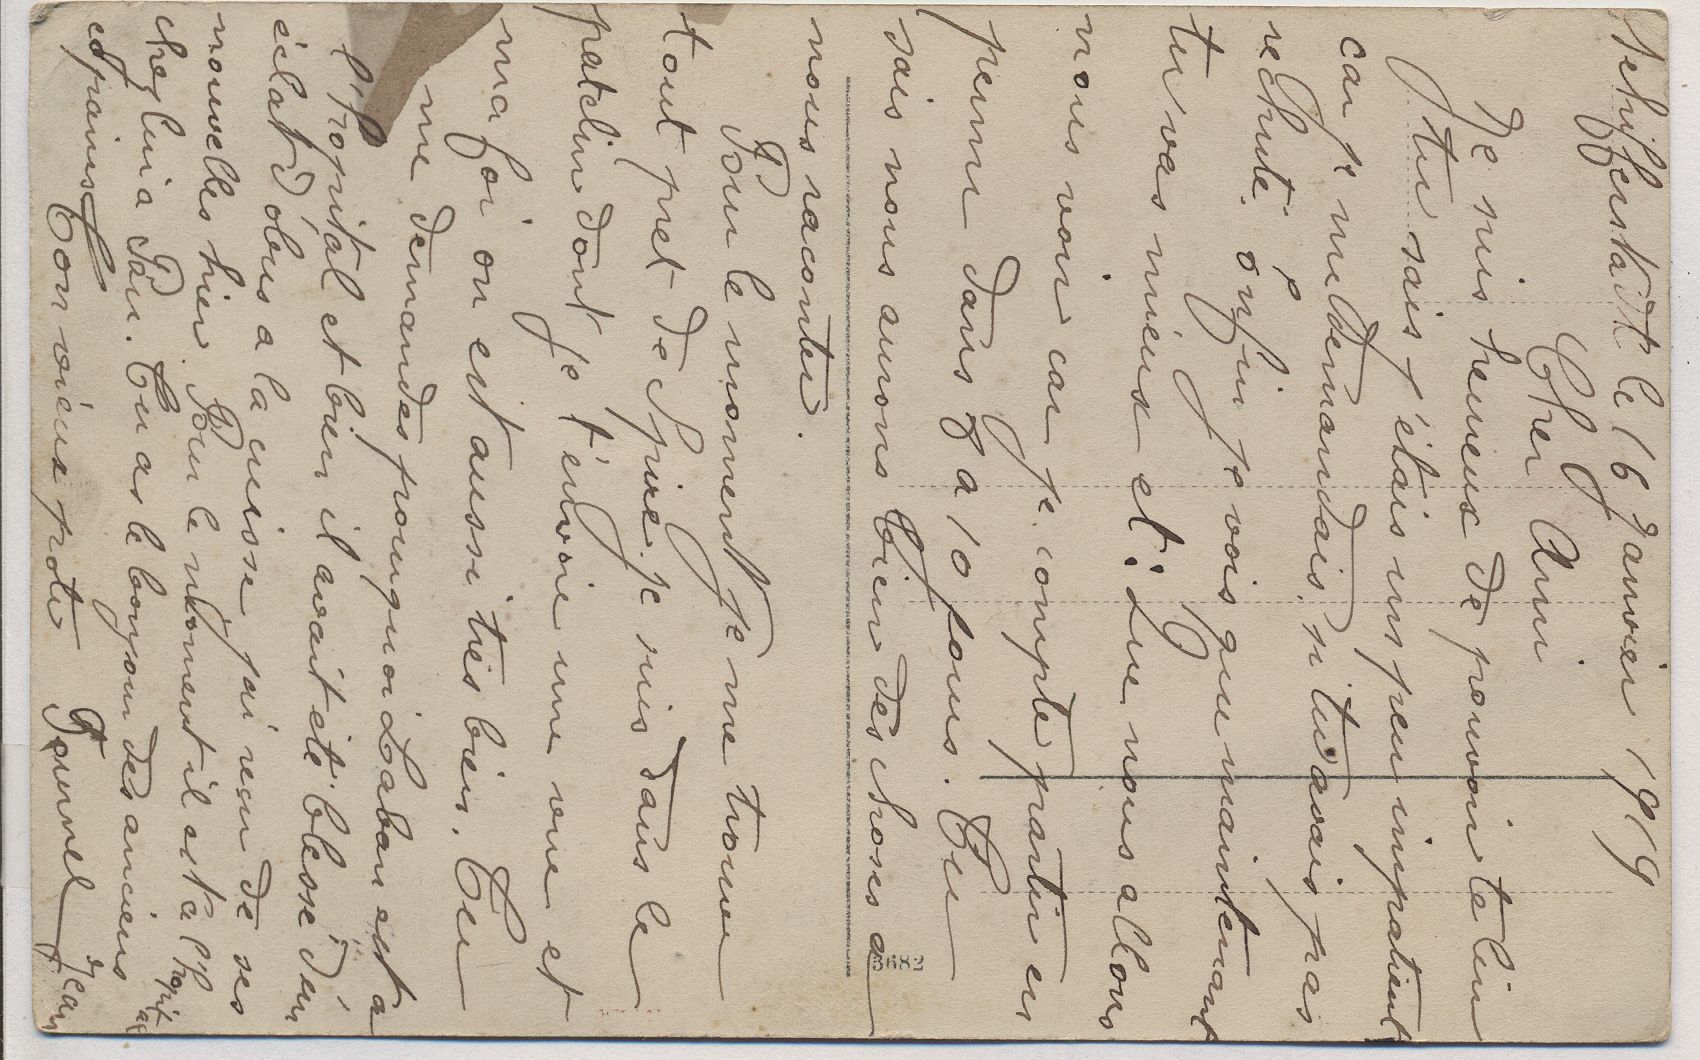 Schifferstadt le 16 Janvier 1919
Cher Ami
Je suis heureux de pouvoir te lire
tu sais j'étais un peu impatient
car je me demandais si tu avais pas
rechuté. Enfin je vois que maintenant
tu vas mieux et que nous allons
nous voir car je compte partir en
perme dans 8 a 10 jours. Tu
sais nous aurons bien des choses a
nous raconter.
Pour le moment je me trouve
tout pret de Spire. je suis dans le
patelin dont je t'envoie une vue et
ma foi on est aussi très bien. Tu
me demandes pourquoi Laban est a
l'hopital et bien il avait été blessé d'un
éclat d'obus a la cuisse j'ai reçu de ses
nouvelles hier. Pour le moment il est a l'hopital
chez lui a Pau. Tu as le bonjour des anciens
copains
Ton vieux pote Jean
3682